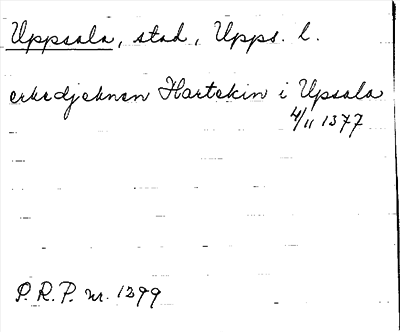 Uppsala, stad, Upps. l.
erkedjeknen Hartekin i Upsala
4/11 1377
P. R. P. nr. 1299